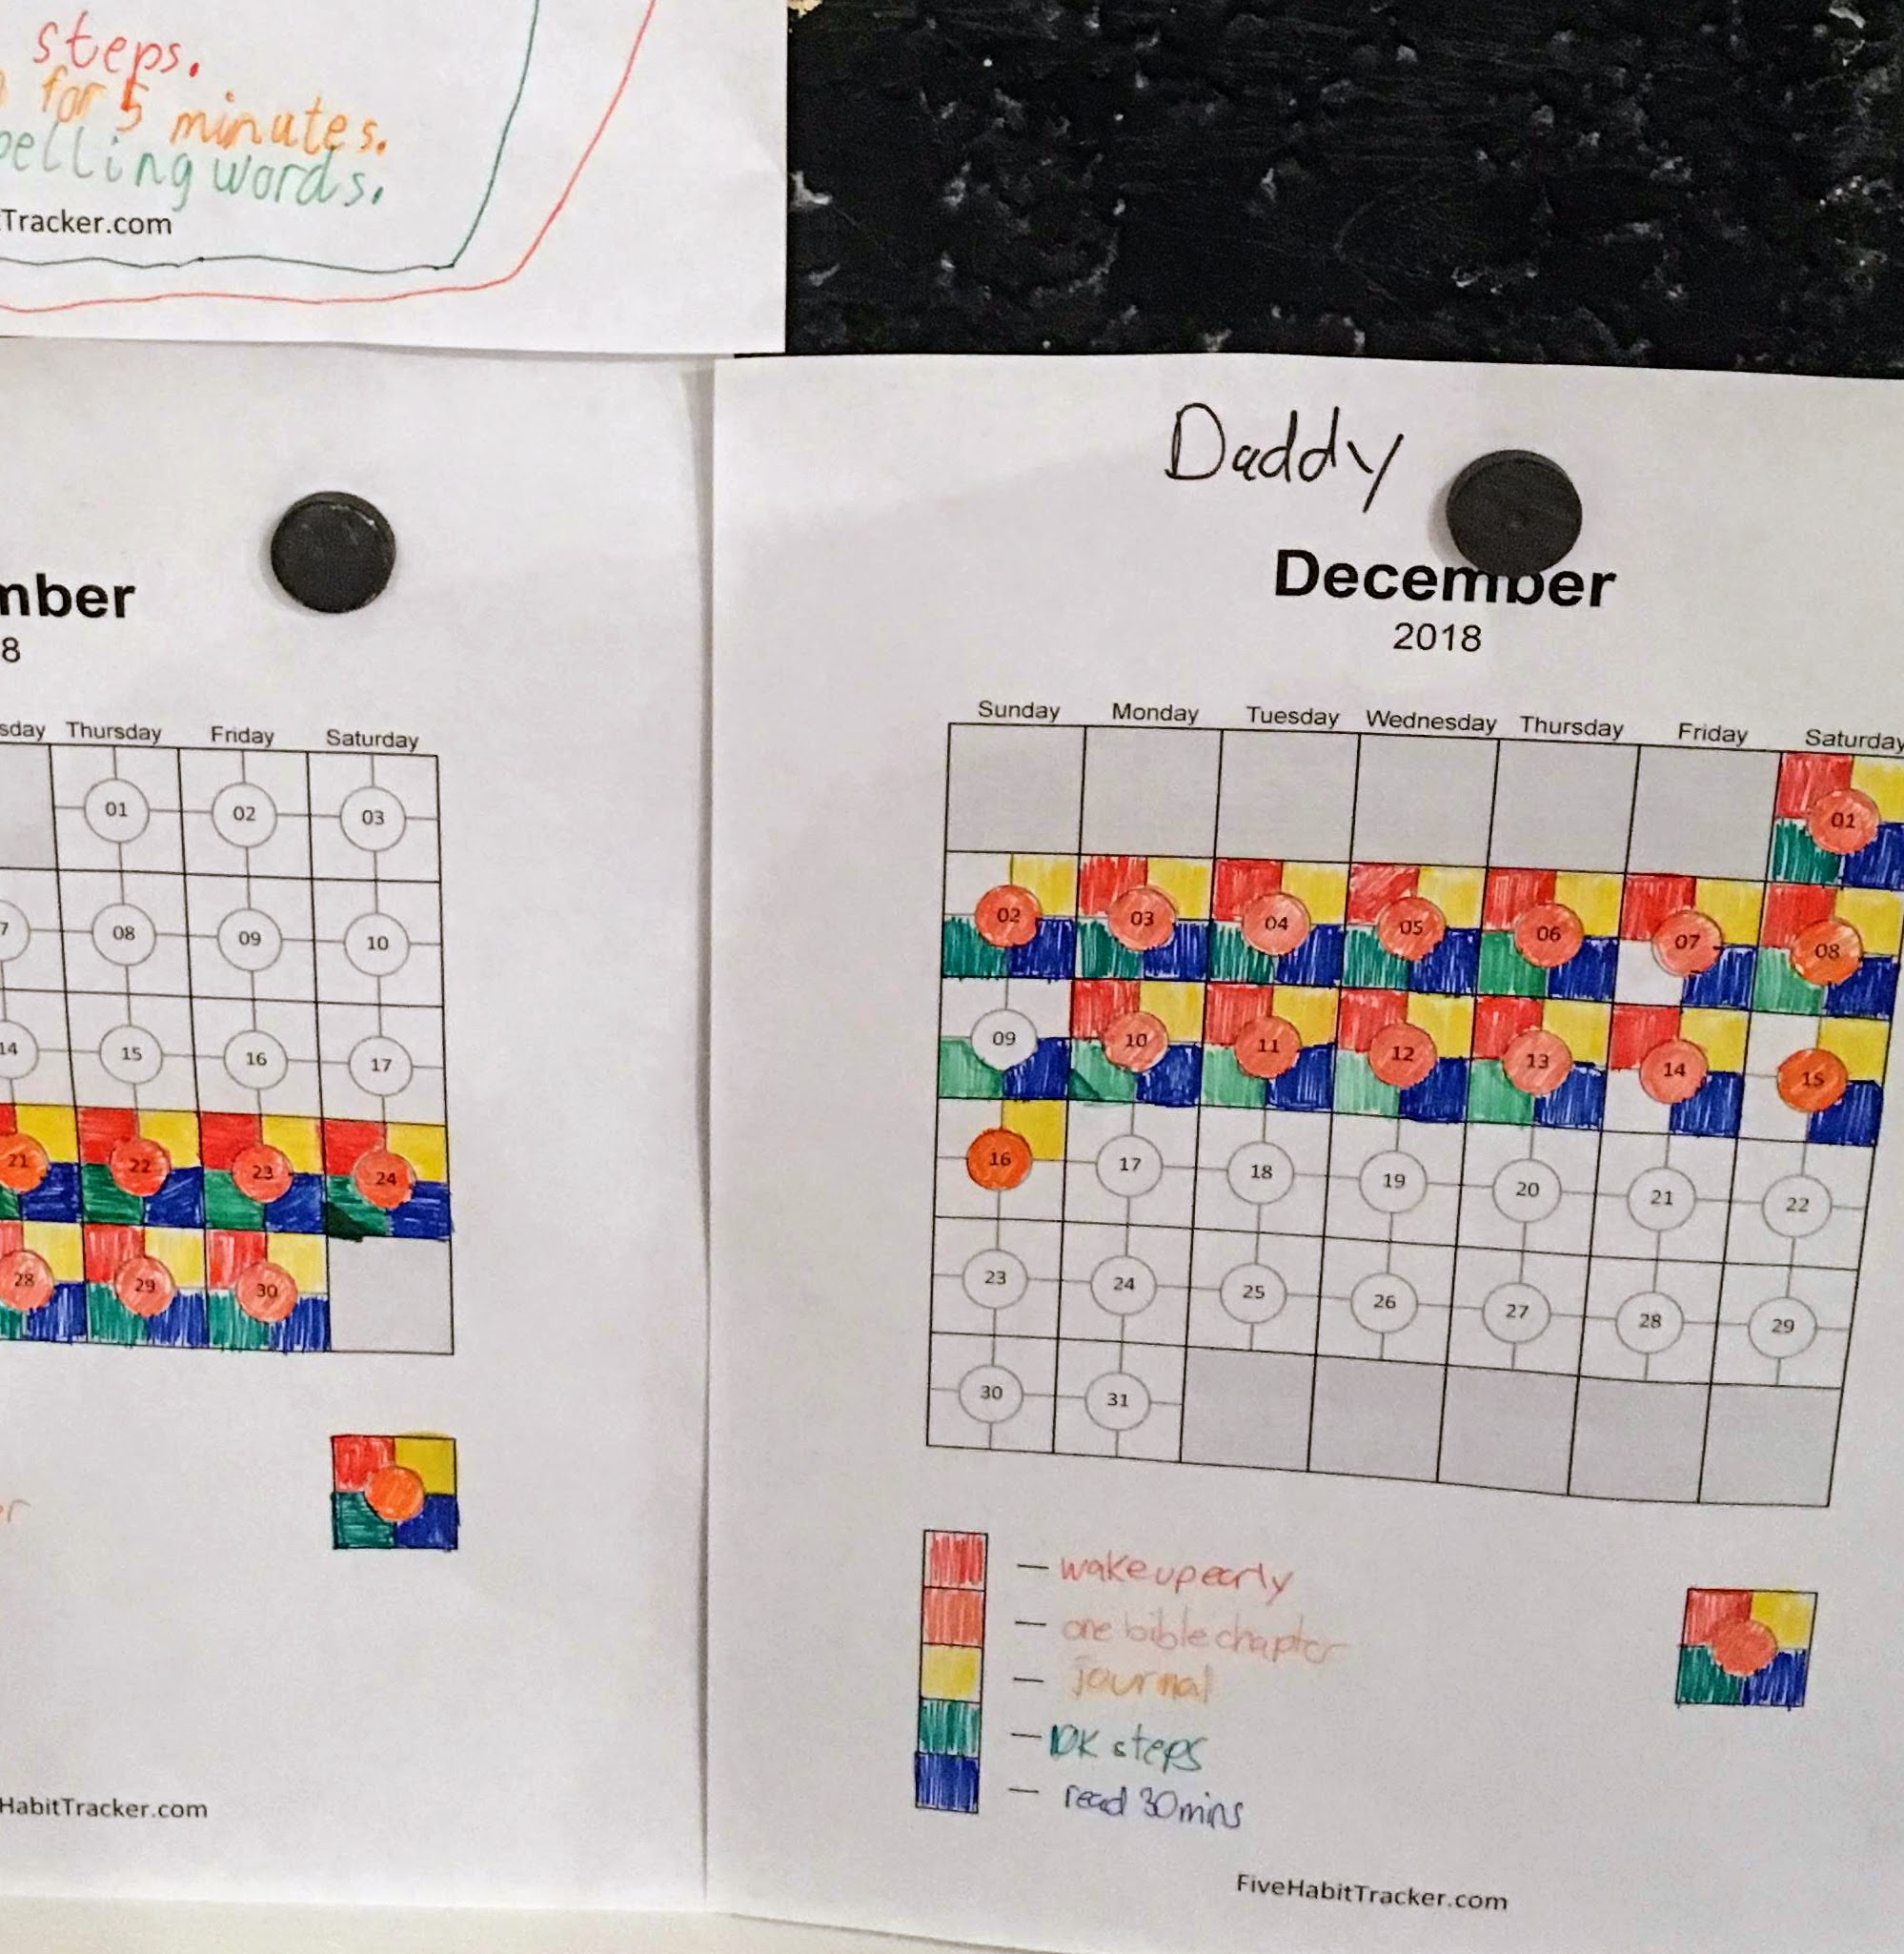 steps.
for 5 minutes.
pelling words.
Tracker.com
mber
8
sday Thursday Friday Saturday
01 02 03
7 08 09 10
14 15 16 17
21 22 23 24
28 29 30
HabitTracker.com
Daddy
December
2018
Sunday Monday Tuesday Wednesday Thursday Friday Saturday
01
02 03 04 05 06 07 08
09 10 11 12 13 14 15
16 17 18 19 20 21 22
23 24 25 26 27 28 29
30 31
— wake up early
— one bible chapter
— journal
— 10K steps
— read 30 mins
FiveHabitTracker.com